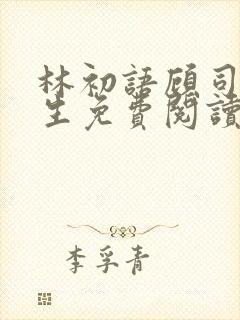 林初語顧司
生免費閱讀
李孚青